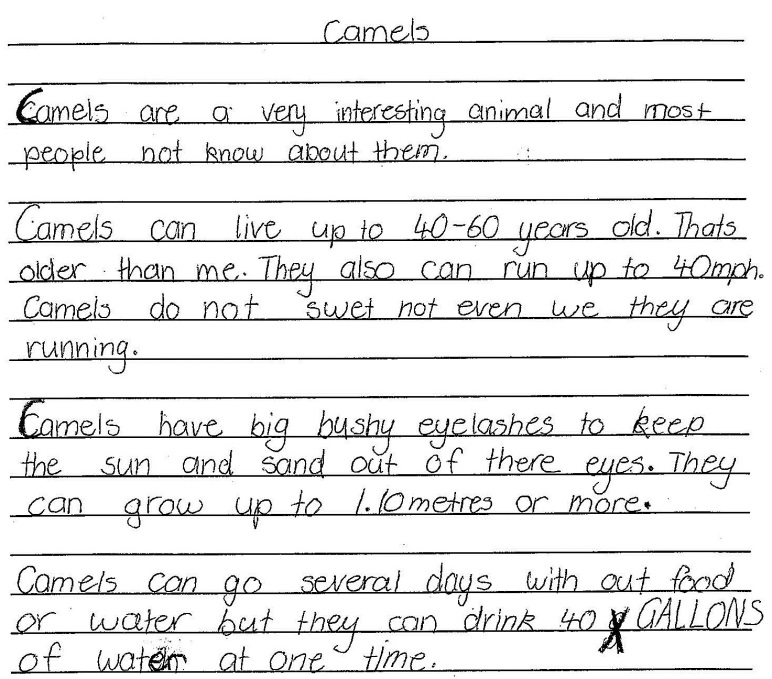 Camels
Camels are a very interesting animal and most
people not know about them.
Camels can live up to 40-60 years old. Thats
older than me. They also can run up to 40mph.
Camels do not swet not even we they are
running.
Camels have big bushy eyelashes to keep
the sun and sand out of there eyes. They
can grow up to 1.10metres or more.
Camels can go several days with out food
or water but they can drink 40 GALLONS
of water at one time.